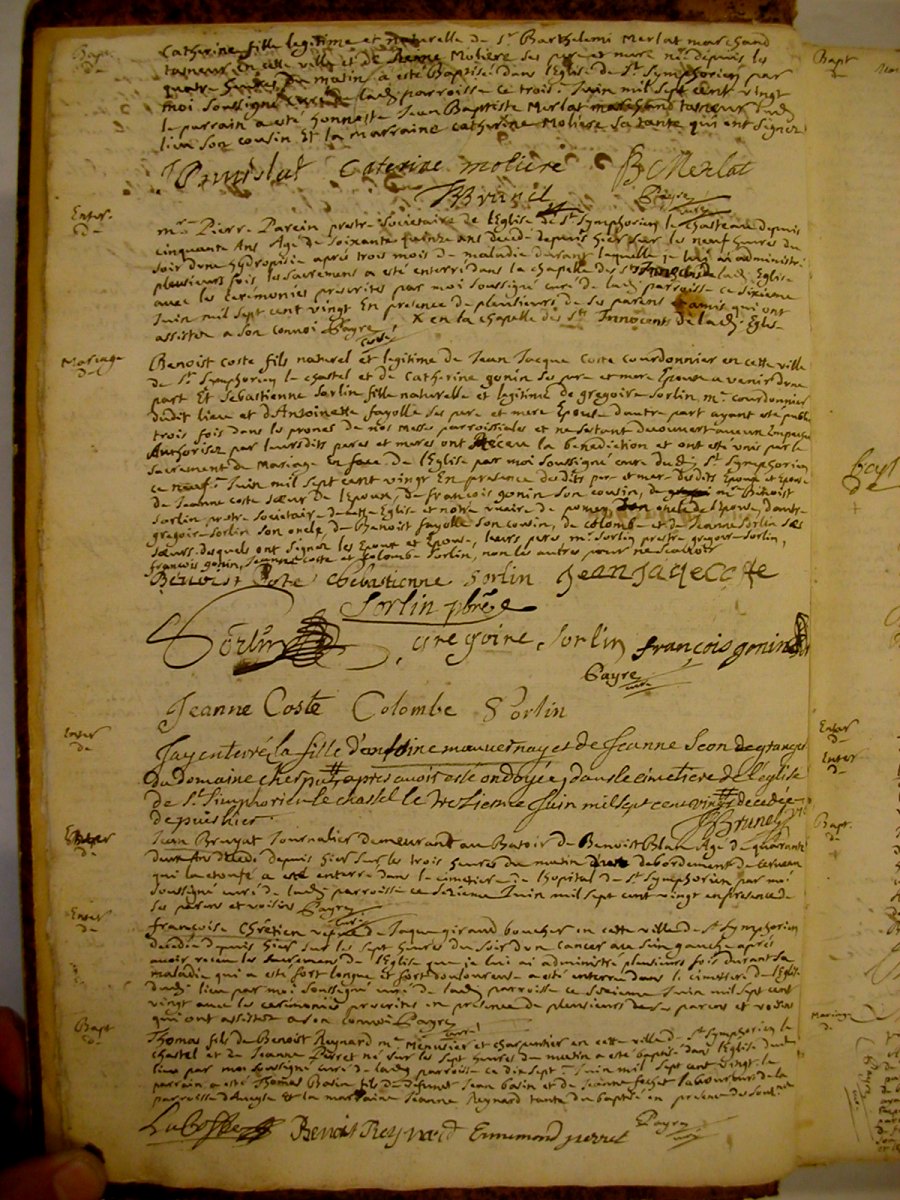 Bapt
Catherine fille legitime et naturelle de Sr Barthelemi Merlat marchand
tanneur en cette ville et de Molière ses pere et mere née depuis les
quatre heures du matin a eté Baptisée dans l'Eglise de St Symphorien par
moi soussigné curé de ladi parroisse ce trois Juin mil sept cent vingt
le parrain a eté honneste Jean Baptiste Merlat marchand tanneur dudi
lieu son cousin Et la marraine Catherine Molière sa tante qui ont signez
Caterine moliere B Merlat
Brunel Payre
curé
Enter
de
mre Pierre Parein prestre societaire de l'Eglise de St Symphorien le chasteau depuis
cinquante Ans Agé de soixante quinze ans decedé depuis hier sur les neuf heures du
soir d'une hydropisie après trois mois de maladie durant laquelle je lui ai administré
plusieurs fois les sacremens a eté enterré dans la chapelle des de ladi Eglise
avec les ceremonies prescrites par moi soussigné curé de ladi parroisse ce sixieme
Juin mil sept cent vingt En presence de plusieurs de ses parens et amis qui ont
assistez a son convoi Payre curé X en la chapelle des Sts Innocents de ladi Eglise
Mariage
de
Benoist Coste fils naturel et legitime de Jean Jacque Coste courdonnier en cette ville
de St Symphorien le chastel et de Catherine gonin ses pere et mere Epoux a venir d'une
part Et Sebastienne Sorlin fille naturelle et legitime de gregoire Sorlin mre courdonnier
dudit lieu et d'Antoinette fayolle ses pere et mere Epouse d'autre part ayant eté publié
trois fois dans les prones de nos messes parroissiales et ne s'etant decouvert aucun Empeche
Authorisez par leursdits peres et meres ont receu la benediction et ont esté unis par le
sacrement de Mariage En face de l'Eglise par moi soussigné curé dudi St Symphorien
ce neuf Juin mil sept cent vingt En presence desdits per et mere desdits Epoux et Epouse
de Jeanne Coste sœur de l'Epoux, de francois gonin son cousin, de mre Benoist
Sorlin prestre societaire de cette Eglise et notre vicaire de pomey, oncle de l'Epouse, d'autre
gregoire Sorlin son oncle, de Benoist fayolle son cousin, de colombe et de Jeanne Sorlin ses
sœurs desquels ont signez les Epoux et Epouse, leurs peres, mre Sorlin prestre, gregoire Sorlin,
françois gonin, Jeanne coste et Colombe Sorlin, non les autres pour ne sçavoir
Benoist Coste Sebastienne Sorlin Jean Jaqe coste
Sorlin pbre
Sorlin gregoire Sorlin françois gonin
Payre
curé
Jeanne Coste Colombe Sorlin
Enter
de
Jay enterré la fille d'antoine mauvernay et de Jeanne
du domaine apres avoir esté ondoyée dans le cimetiere de l'eglise
de St Simphorien le chastel le treizieme Juin mil sept cent vingt decedée
depuis hier. Brunel vic
Enter
de
Jean Bruyat Journalier demeurant au de Benoist Blan Agé de quarante
deux ans decedé depuis hier sur les trois heures du matin debordement de cerveau
qui la etouffé a eté enterré dans le cimetiere de l'hopital de St Symphorien par moi
soussigné curé de ladi parroisse ce sezieme Juin mil sept cent vingt en presence de
ses parens et voisins Payre
curé
Enter
de
françoise Chrétien de Jaque giraud boucher en cette ville de St Symphorien
decedée depuis hier sur les sept heures du soir d'un cancer au sein gauche après
avoir receu les sacremens de l'Eglise que je lui ai administré plusieurs fois durant sa
maladie qui a eté fort longue et fort douloureuse a eté enterrée dans le cimetiere de l'Eglise
dudi lieu par moi soussigné curé de ladi parroisse ce sezieme Juin mil sept cent
vingt avec les ceremonies prescrites en presence de plusieurs de ses parens et voisins
qui ont assistez a son convoi Payre
curé
Bapt
de
Thomas fils de Benoist Reynard mre Menuisier et charpentier en cette ville de St Symphorien le
chastel et de Jeanne Perret né sur les sept heures du matin a eté baptisé dans l'Eglise dudi
lieu par moi soussigné curé de ladi parroisse ce dix sept Juin mil sept cent vingt le
parrain a eté Thomas Basin fils de defunct Jean basin et de Jeanne laboureur de la
parroisse et la marraine Jeanne Reynard tante du baptisé en presence des
Benoit Reynard Ennemond perret Payre
curé
Bapt
de
Enter
de
Enter
de
Bapt
de
Mariage
de